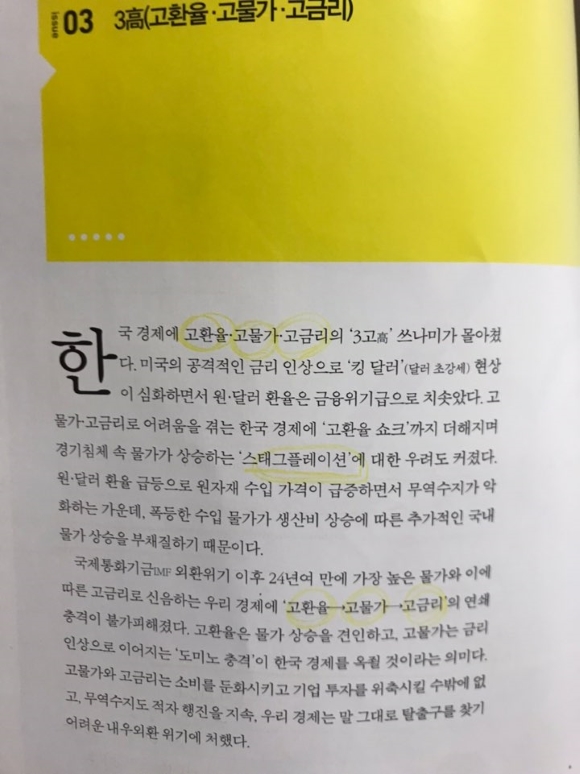 issue 03 3高(고환율·고물가·고금리)
한국 경제에 고환율·고물가·고금리의 ‘3고高’ 쓰나미가 몰아쳤
다. 미국의 공격적인 금리 인상으로 ‘킹 달러’(달러 초강세) 현상
이 심화하면서 원·달러 환율은 금융위기급으로 치솟았다. 고
물가·고금리로 어려움을 겪는 한국 경제에 ‘고환율 쇼크’까지 더해지며
경기침체 속 물가가 상승하는 ‘스태그플레이션’에 대한 우려도 커졌다.
원·달러 환율 급등으로 원자재 수입 가격이 급증하면서 무역수지가 악
화하는 가운데, 폭등한 수입 물가가 생산비 상승에 따른 추가적인 국내
물가 상승을 부채질하기 때문이다.
국제통화기금IMF 외환위기 이후 24년여 만에 가장 높은 물가와 이에
따른 고금리로 신음하는 우리 경제에 ‘고환율→고물가→고금리’의 연쇄
충격이 불가피해졌다. 고환율은 물가 상승을 견인하고, 고물가는 금리
인상으로 이어지는 ‘도미노 충격’이 한국 경제를 옥죌 것이라는 의미다.
고물가와 고금리는 소비를 둔화시키고 기업 투자를 위축시킬 수밖에 없
고, 무역수지도 적자 행진을 지속, 우리 경제는 말 그대로 탈출구를 찾기
어려운 내우외환 위기에 처했다.